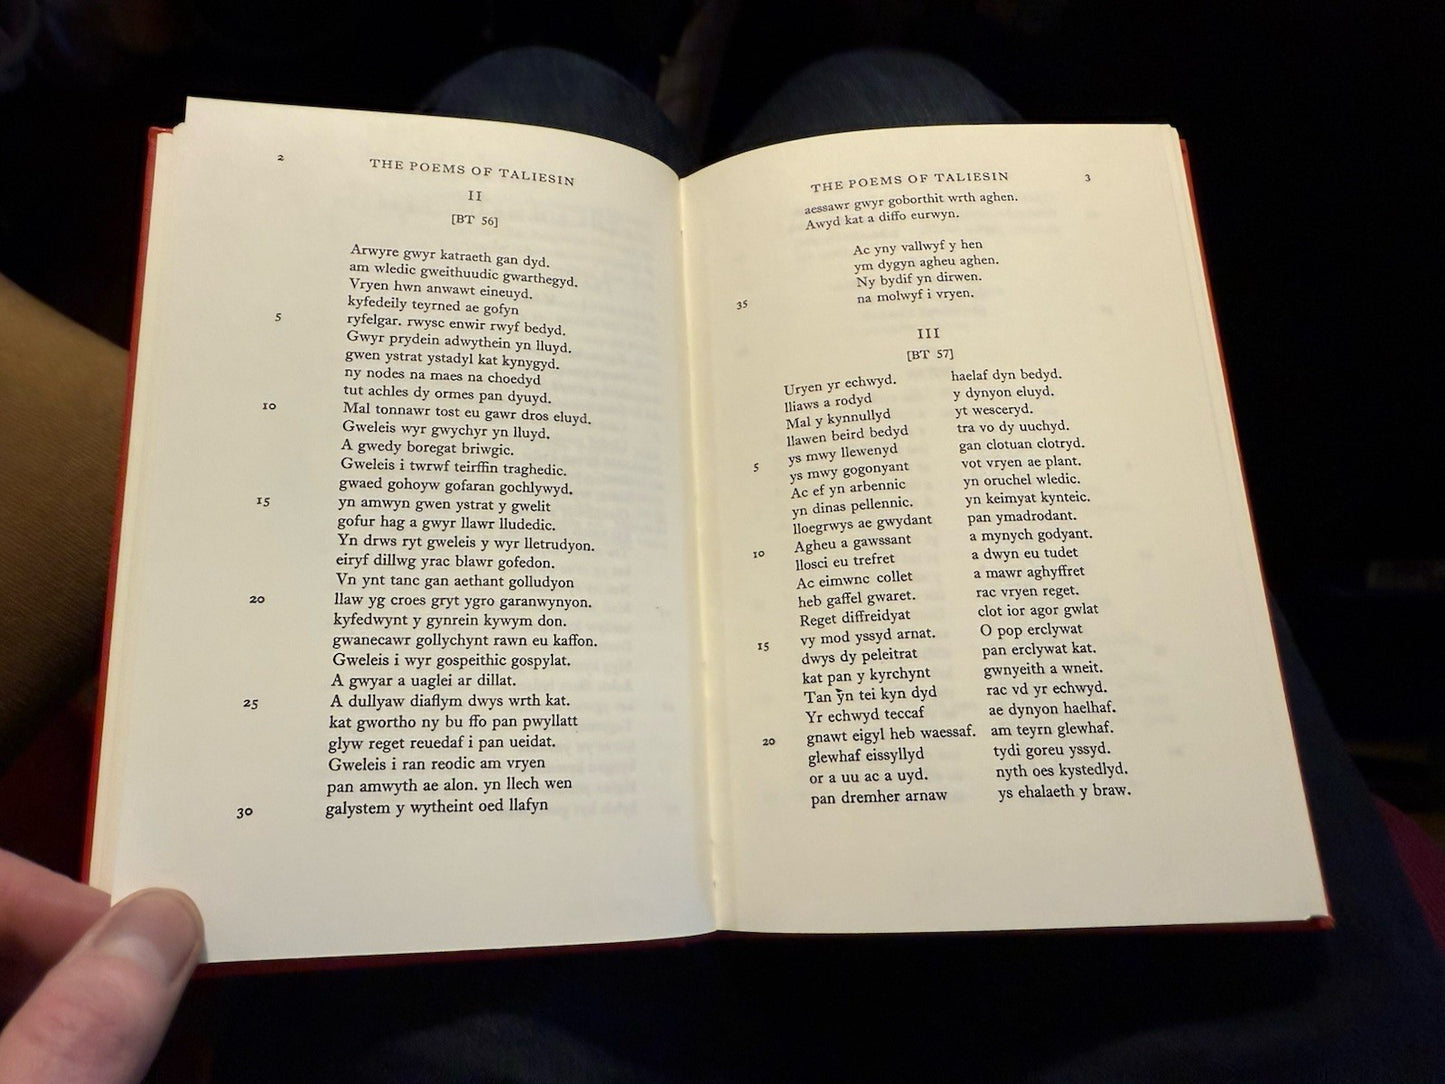 2
THE POEMS OF TALIESIN
II
[BT 56]
Arwyre gwyr katraeth gan dyd.
am wledic gweithuudic gwarthegyd.
Vryen hwn anwawt eineuyd.
kyfedeily teyrned ae gofyn
5 ryfelgar. rwysc enwir rwyf bedyd.
Gwyr prydein adwythein yn lluyd.
gwen ystrat ystadyl kat kynygyd.
ny nodes na maes na choedyd
tut achles dy ormes pan dyuyd.
10 Mal tonnawr tost eu gawr dros eluyd.
Gweleis wyr gwychyr yn lluyd.
A gwedy boregat briwgic.
Gweleis i twrwf teirffin traghedic.
gwaed gohoyw gofaran gochlywyd.
15 yn amwyn gwen ystrat y gwelit
gofur hag a gwyr llawr lludedic.
Yn drws ryt gweleis y wyr lletrudyon.
eiryf dillwg yrac blawr gofedon.
Vn ynt tanc gan aethant golludyon
20 llaw yg croes gryt ygro garanwynyon.
kyfedwynt y gynrein kywym don.
gwanecawr gollychynt rawn eu kaffon.
Gweleis i wyr gospeithic gospylat.
A gwyar a uaglei ar dillat.
25 A dullyaw diaflym dwys wrth kat.
kat gwortho ny bu ffo pan pwyllatt
glyw reget reuedaf i pan ueidat.
Gweleis i ran reodic am vryen
pan amwyth ae alon. yn llech wen
30 galystem y wytheint oed llafyn
THE POEMS OF TALIESIN
3
aessawr gwyr goborthit wrth aghen.
Awyd kat a diffo eurwyn.
Ac yny vallwyf y hen
ym dygyn agheu aghen.
Ny bydif yn dirwen.
35 na molwyf i vryen.
III
[BT 57]
Uryen yr echwyd. haelaf dyn bedyd.
lliaws a rodyd y dynyon eluyd.
Mal y kynnullyd yt wesceryd.
llawen beird bedyd tra vo dy uuchyd.
5 ys mwy llewenyd gan clotuan clotryd.
ys mwy gogonyant vot vryen ae plant.
Ac ef yn arbennic yn oruchel wledic.
yn dinas pellennic. yn keimyat kynteic.
lloegrwys ae gwydant pan ymadrodant.
10 Agheu a gawssant a mynych godyant.
llosci eu trefret a dwyn eu tudet
Ac eimwnc collet a mawr aghyffret
heb gaffel gwaret. rac vryen reget.
Reget diffreidyat clot ior agor gwlat
15 vy mod yssyd arnat. O pop erclywat
dwys dy peleitrat pan erclywat kat.
kat pan y kyrchynt gwnyeith a wneit.
Tan yn tei kyn dyd rac vd yr echwyd.
Yr echwyd teccaf ae dynyon haelhaf.
20 gnawt eigyl heb waessaf. am teyrn glewhaf.
glewhaf eissyllyd tydi goreu yssyd.
or a uu ac a uyd. nyth oes kystedlyd.
pan dremher arnaw ys ehalaeth y braw.